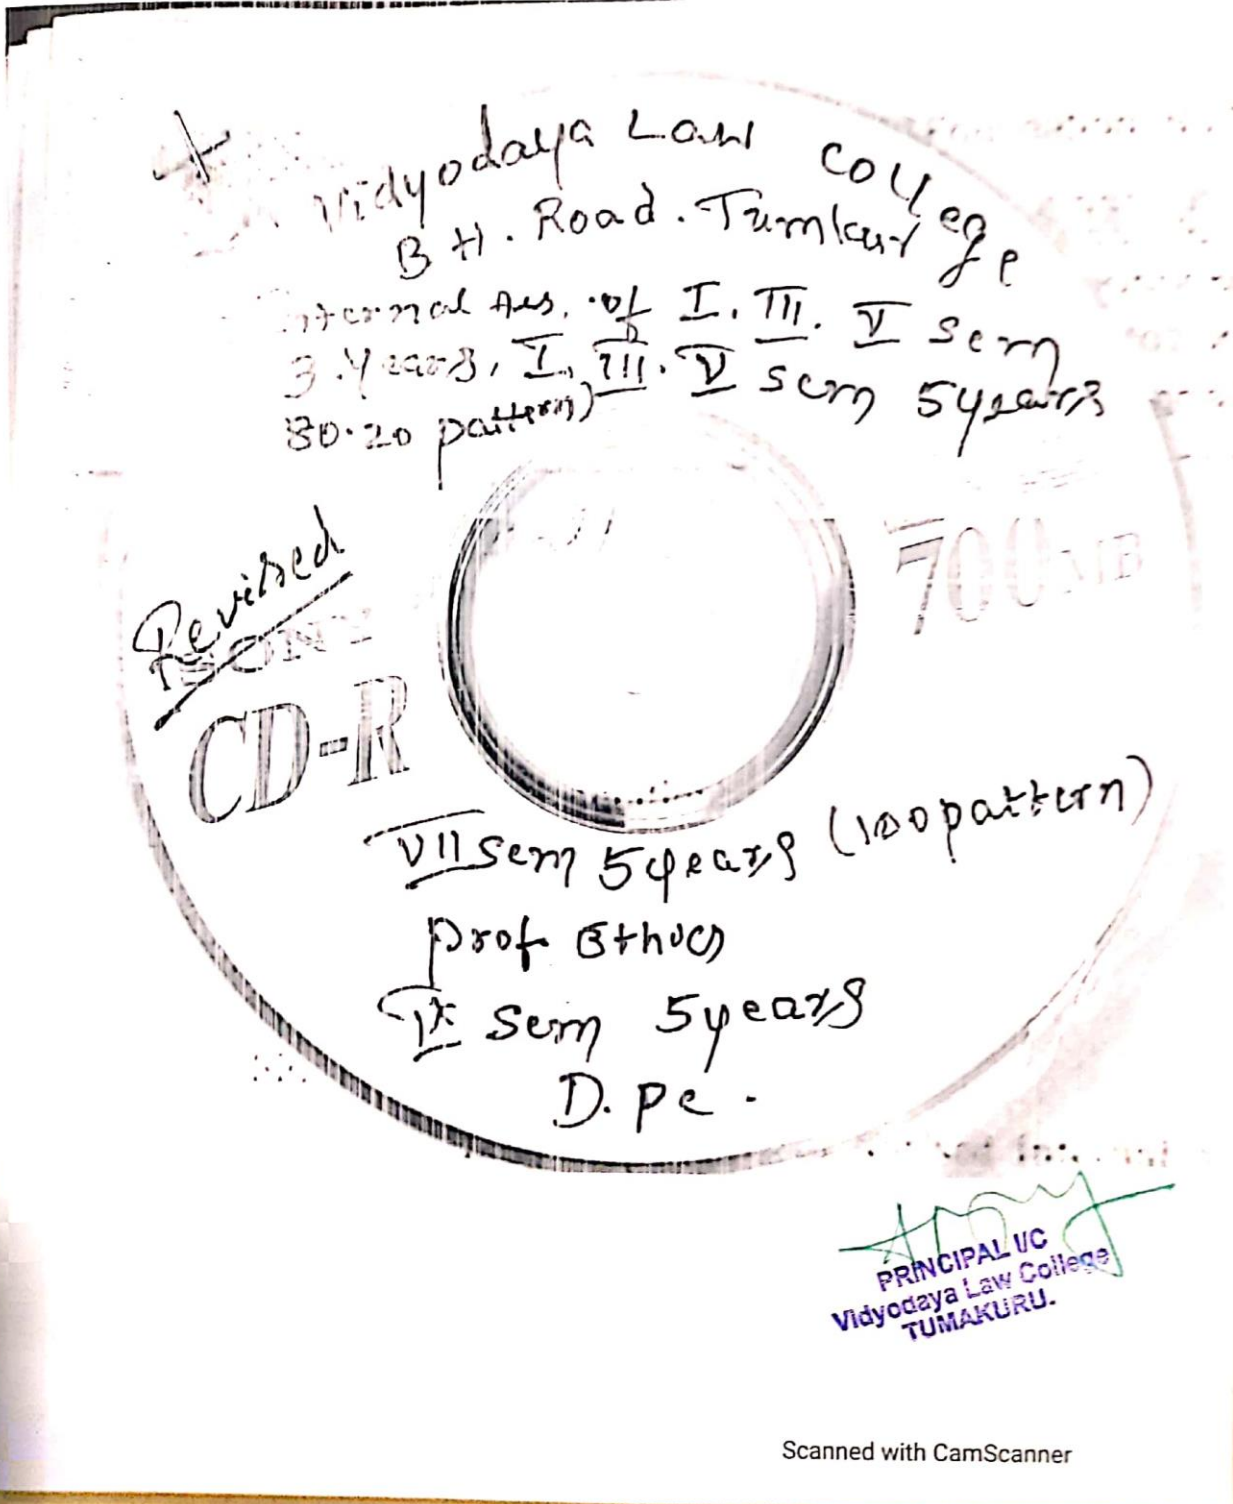 Vidyodaya Law College
B H. Road. Tumkur
Internal Ass. of I. III. V Sem
3 Years, I, III. V Sem 5years
80.20 pattern)
Revised
SONY
CD-R
700MB
VII Sem 5years (100pattern)
Prof Ethics
IX Sem 5years
D. Pc.
PRINCIPAL I/C
Vidyodaya Law College
TUMAKURU.
Scanned with CamScanner